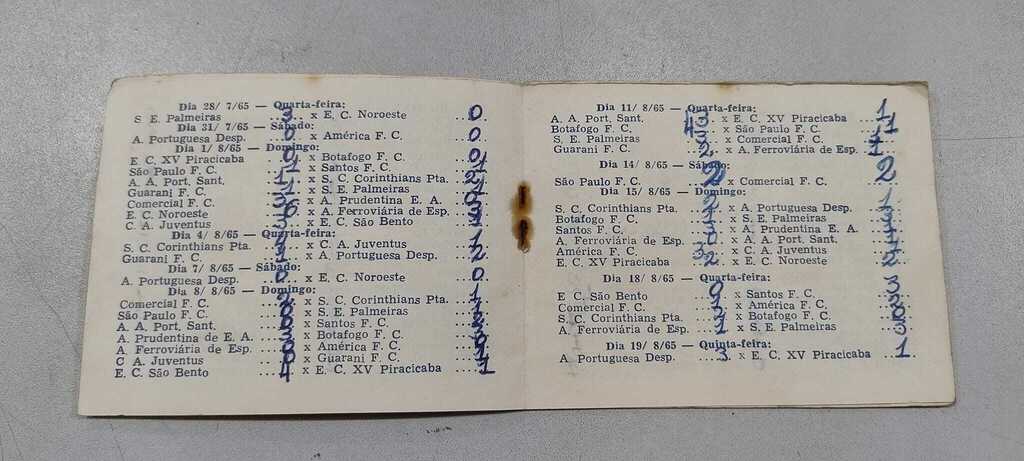 Dia 28/ 7/65 — Quarta-feira:
S. E. Palmeiras 3 x E. C. Noroeste 0
Dia 31/ 7/65 — Sábado:
A. Portuguesa Desp. 0 x América F. C. 0
Dia 1/ 8/65 — Domingo:
E C. XV Piracicaba 0 x Botafogo F. C. 0
São Paulo F. C. x Santos F. C.
A. A. Port. Sant. 1 x S. C. Corinthians Pta. 2
Guarani F. C. 1 x S. E. Palmeiras
Comercial F. C. 3 x A. Prudentina E. A. 0
E. C. Noroeste x A. Ferroviária de Esp.
C. A. Juventus 3 x E. C. São Bento
Dia 4/ 8/65 — Quarta-feira:
S. C. Corinthians Pta. x C. A. Juventus 1
Guarani F. C. x A. Portuguesa Desp. 2
Dia 7/ 8/65 — Sábado:
A. Portuguesa Desp. 0 x E. C. Noroeste 0
Dia 8/ 8/65 — Domingo:
Comercial F. C. 2 x S. C. Corinthians Pta. 1
São Paulo F. C. x S. E. Palmeiras
A. A. Port. Sant. 0 x Santos F. C.
A. Prudentina de E. A. 3 x Botafogo F. C.
A. Ferroviária de Esp. x América F. C. 0
C A. Juventus 0 x Guarani F. C.
E. C. São Bento 4 x E. C. XV Piracicaba 1
Dia 11/ 8/65 — Quarta-feira:
A. A. Port. Sant. x E. C. XV Piracicaba 1
Botafogo F. C. x São Paulo F. C.
S. E. Palmeiras 3 x Comercial F. C.
Guarani F. C. 2 x A. Ferroviária de Esp.
Dia 14/ 8/65 — Sábado:
São Paulo F. C. 2 x Comercial F. C. 2
Dia 15/ 8/65 — Domingo:
S. C. Corinthians Pta. 2 x A. Portuguesa Desp. 1
Botafogo F. C. x S. E. Palmeiras
Santos F. C. x A. Prudentina E. A.
A. Ferroviária de Esp. 0 x A. A. Port. Sant.
América F. C. 3 x C. A. Juventus
E. C. XV Piracicaba 2 x E. C. Noroeste 2
Dia 18/ 8/65 — Quarta-feira:
E C. São Bento 0 x Santos F. C. 3
Comercial F. C. x América F. C.
S. C. Corinthians Pta. x Botafogo F. C.
A. Ferroviária de Esp. 1 x S. E. Palmeiras
Dia 19/ 8/65 — Quinta-feira:
A. Portuguesa Desp. 3 x E. C. XV Piracicaba 1